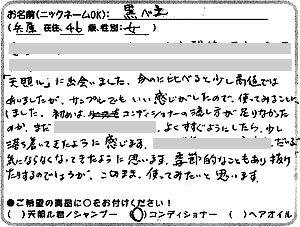 お名前(ニックネームOK): 黒べえ
(兵庫 在住、46 歳、性別: 女 )
「天頭ル」に出会いました。なのに比べると少し高値では
ありましたが、サンプルでもいい感じがしたので、使ってみることに
しました。初めは、コンディショナーの流し方が足りなかった
のか、まだ
、よくすすぐようにしたら、少し
落ち着いてきたように感じます。
だいぶ
気にならなくなってきたように思います。季節的なこともあり抜け
たりするのでしょうが、このまま、使ってみたいと思います。
●ご希望の商品に○をお付けください!
( )天頭ル君ノシャンプー (○)コンディショナー ( )ヘアオイル